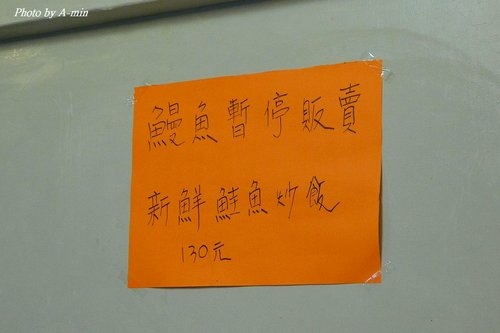 Photo by A-min
鰻魚暫停販賣
新鮮鮭魚炒飯
130元